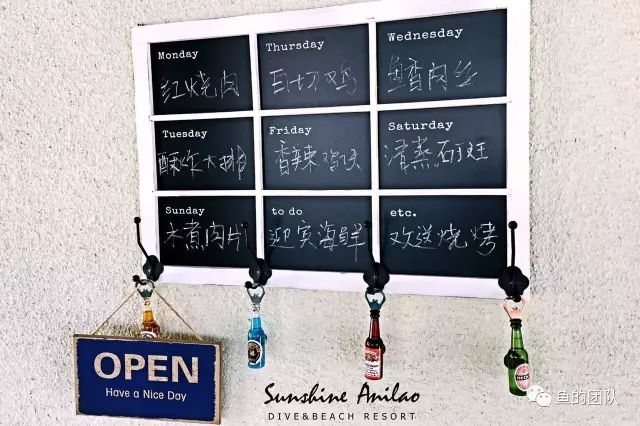 Monday
红烧肉
Thursday
白切鸡
Wednesday
鱼香肉丝
Tuesday
酥炸大排
Friday
香辣鸡块
Saturday
清蒸石斑
Sunday
水煮肉片
to do
迎宾海鲜
etc.
欢送烧烤
OPEN
Have a Nice Day
Sunshine Anilao
DIVE&BEACH RESORT
鱼的团队